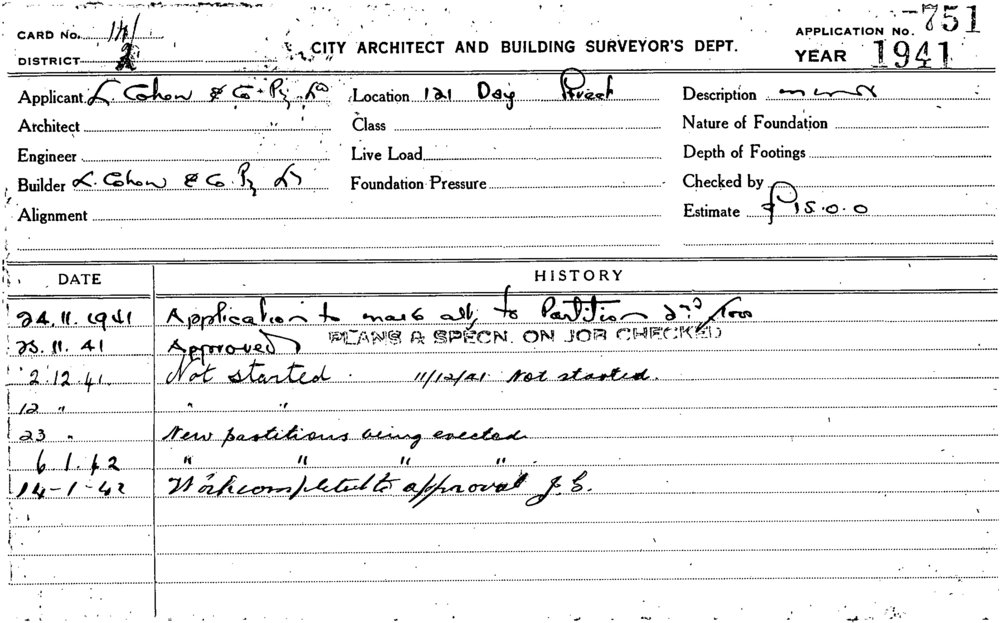 CARD No. 141
DISTRICT 2
CITY ARCHITECT AND BUILDING SURVEYOR'S DEPT.
APPLICATION No. 751
YEAR 1941
Applicant L. Cohen & Co. Py Ld Location 121 Day Street Description
Architect Class Nature of Foundation
Engineer Live Load Depth of Footings
Builder L. Cohen & Co. Py Ld Foundation Pressure Checked by
Alignment Estimate £15.0.0
DATE HISTORY
24.11.1941 Application to make alts to Partition 2nd floor
25.11.41 Approved PLANS & SPECN. ON JOB CHECKED
2.12.41 Not started. 11/12/41 Not started.
12 " " "
23 " New partitions being erected
6.1.42 " " " "
14-1-42 Work completed to approval J.G.